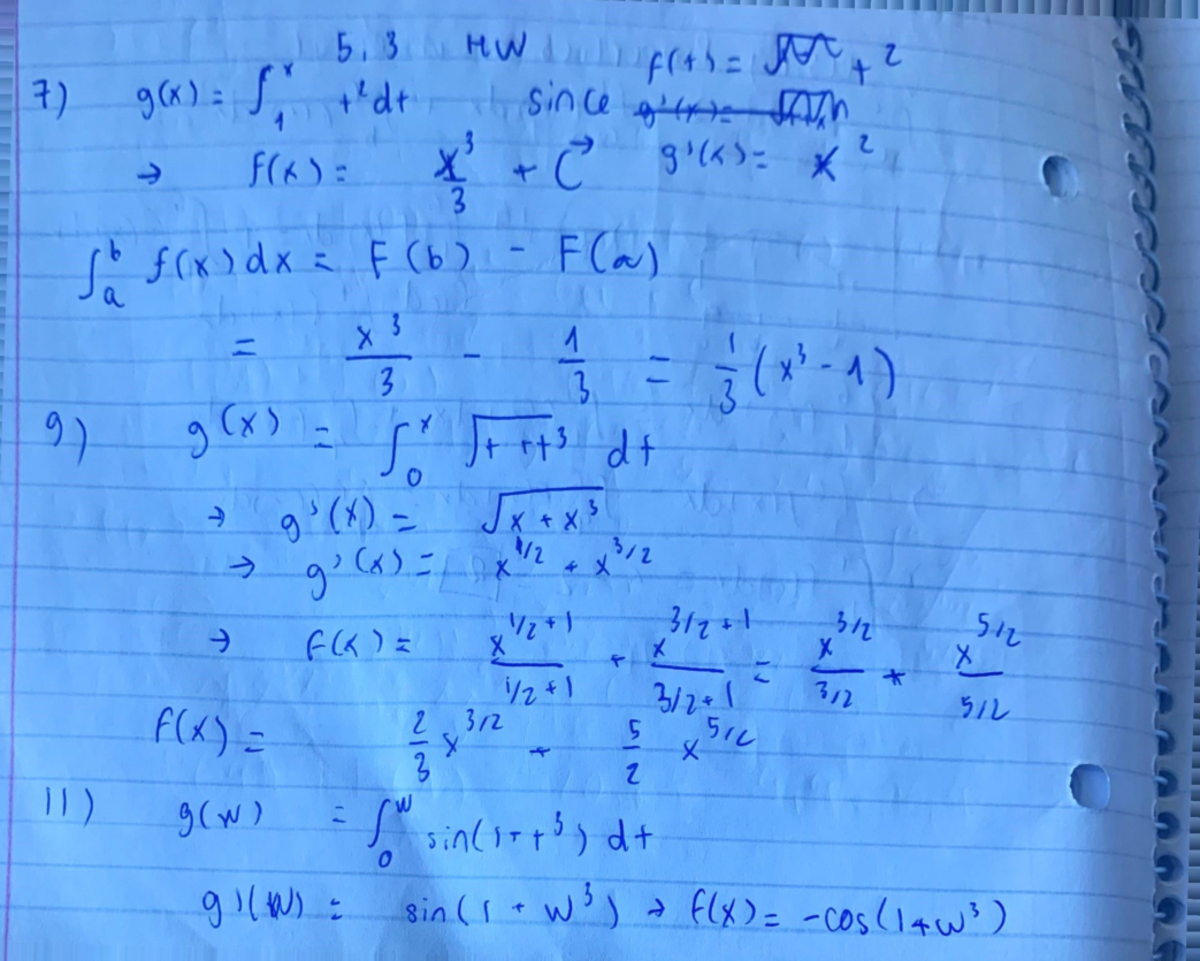 5.3 HW
7) g(x) = ∫₁ˣ t²dt since f(t) = t²
g'(x) =
→ f(x) = x³/3 + C→ g'(x) = x²
∫ₐᵇ f(x)dx = F(b) - F(a)
= x³/3 - 1/3 = 1/3(x³ - 1)
9) g(x) = ∫₀ˣ √(t+t³) dt
→ g'(x) = √(x + x³)
→ g'(x) = x^1/2 + x^3/2
→ f(x) = x^(1/2+1)/(1/2+1) + x^(3/2+1)/(3/2+1) = x^(3/2)/(3/2) + x^(5/2)/(5/2)
f(x) = 2/3 x^3/2 + 5/2 x^5/2
11) g(w) = ∫₀ʷ sin(1+t³) dt
g'(w) = sin(1 + w³) → f(x) = -cos(1+w³)